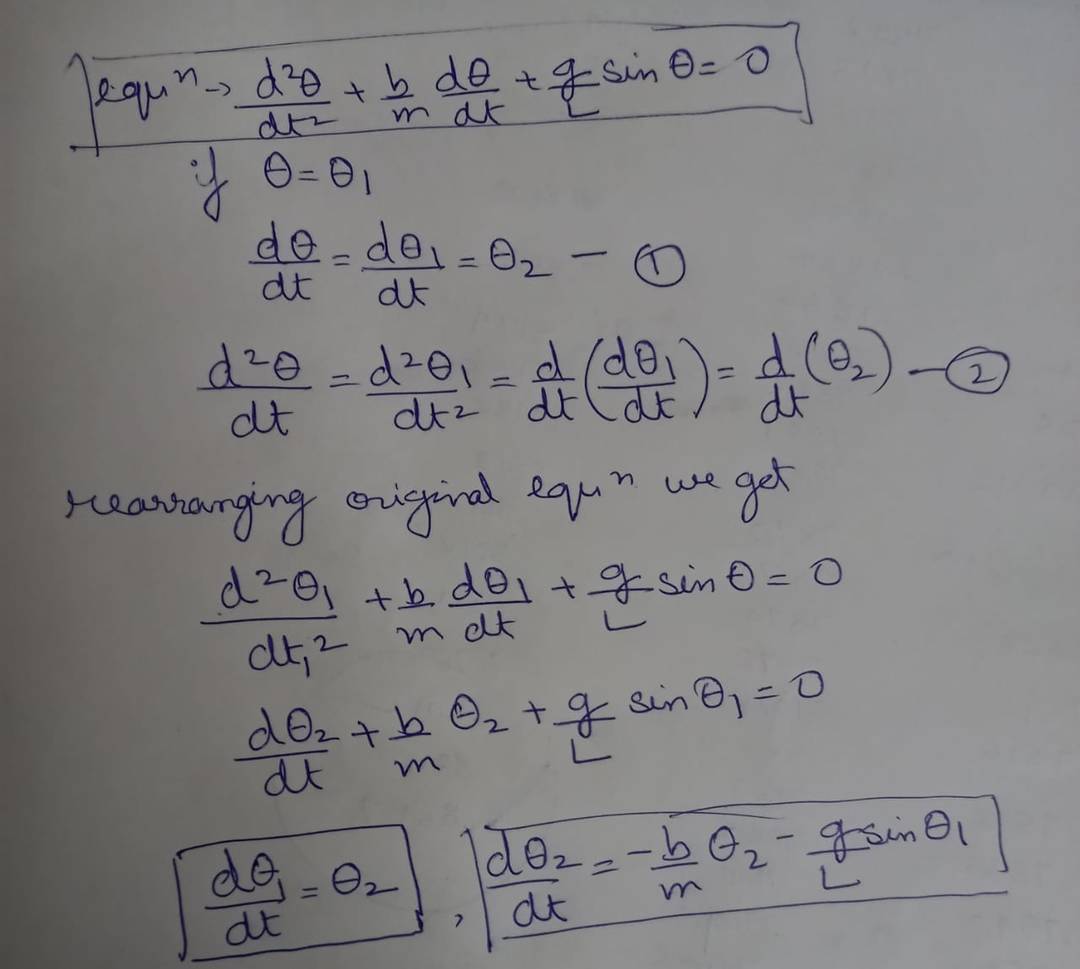 equⁿ → d²θ/dt² + b/m dθ/dt + g/L sin θ = 0
if θ = θ₁
dθ/dt = dθ₁/dt = θ₂ — ①
d²θ/dt = d²θ₁/dt² = d/dt (dθ₁/dt) = d/dt (θ₂) — ②
rearranging original equⁿ we get
d²θ₁/dt₁² + b/m dθ₁/dt + g/L sin θ = 0
dθ₂/dt + b/m θ₂ + g/L sin θ₁ = 0
dθ₁/dt = θ₂ , dθ₂/dt = -b/m θ₂ - g/L sin θ₁